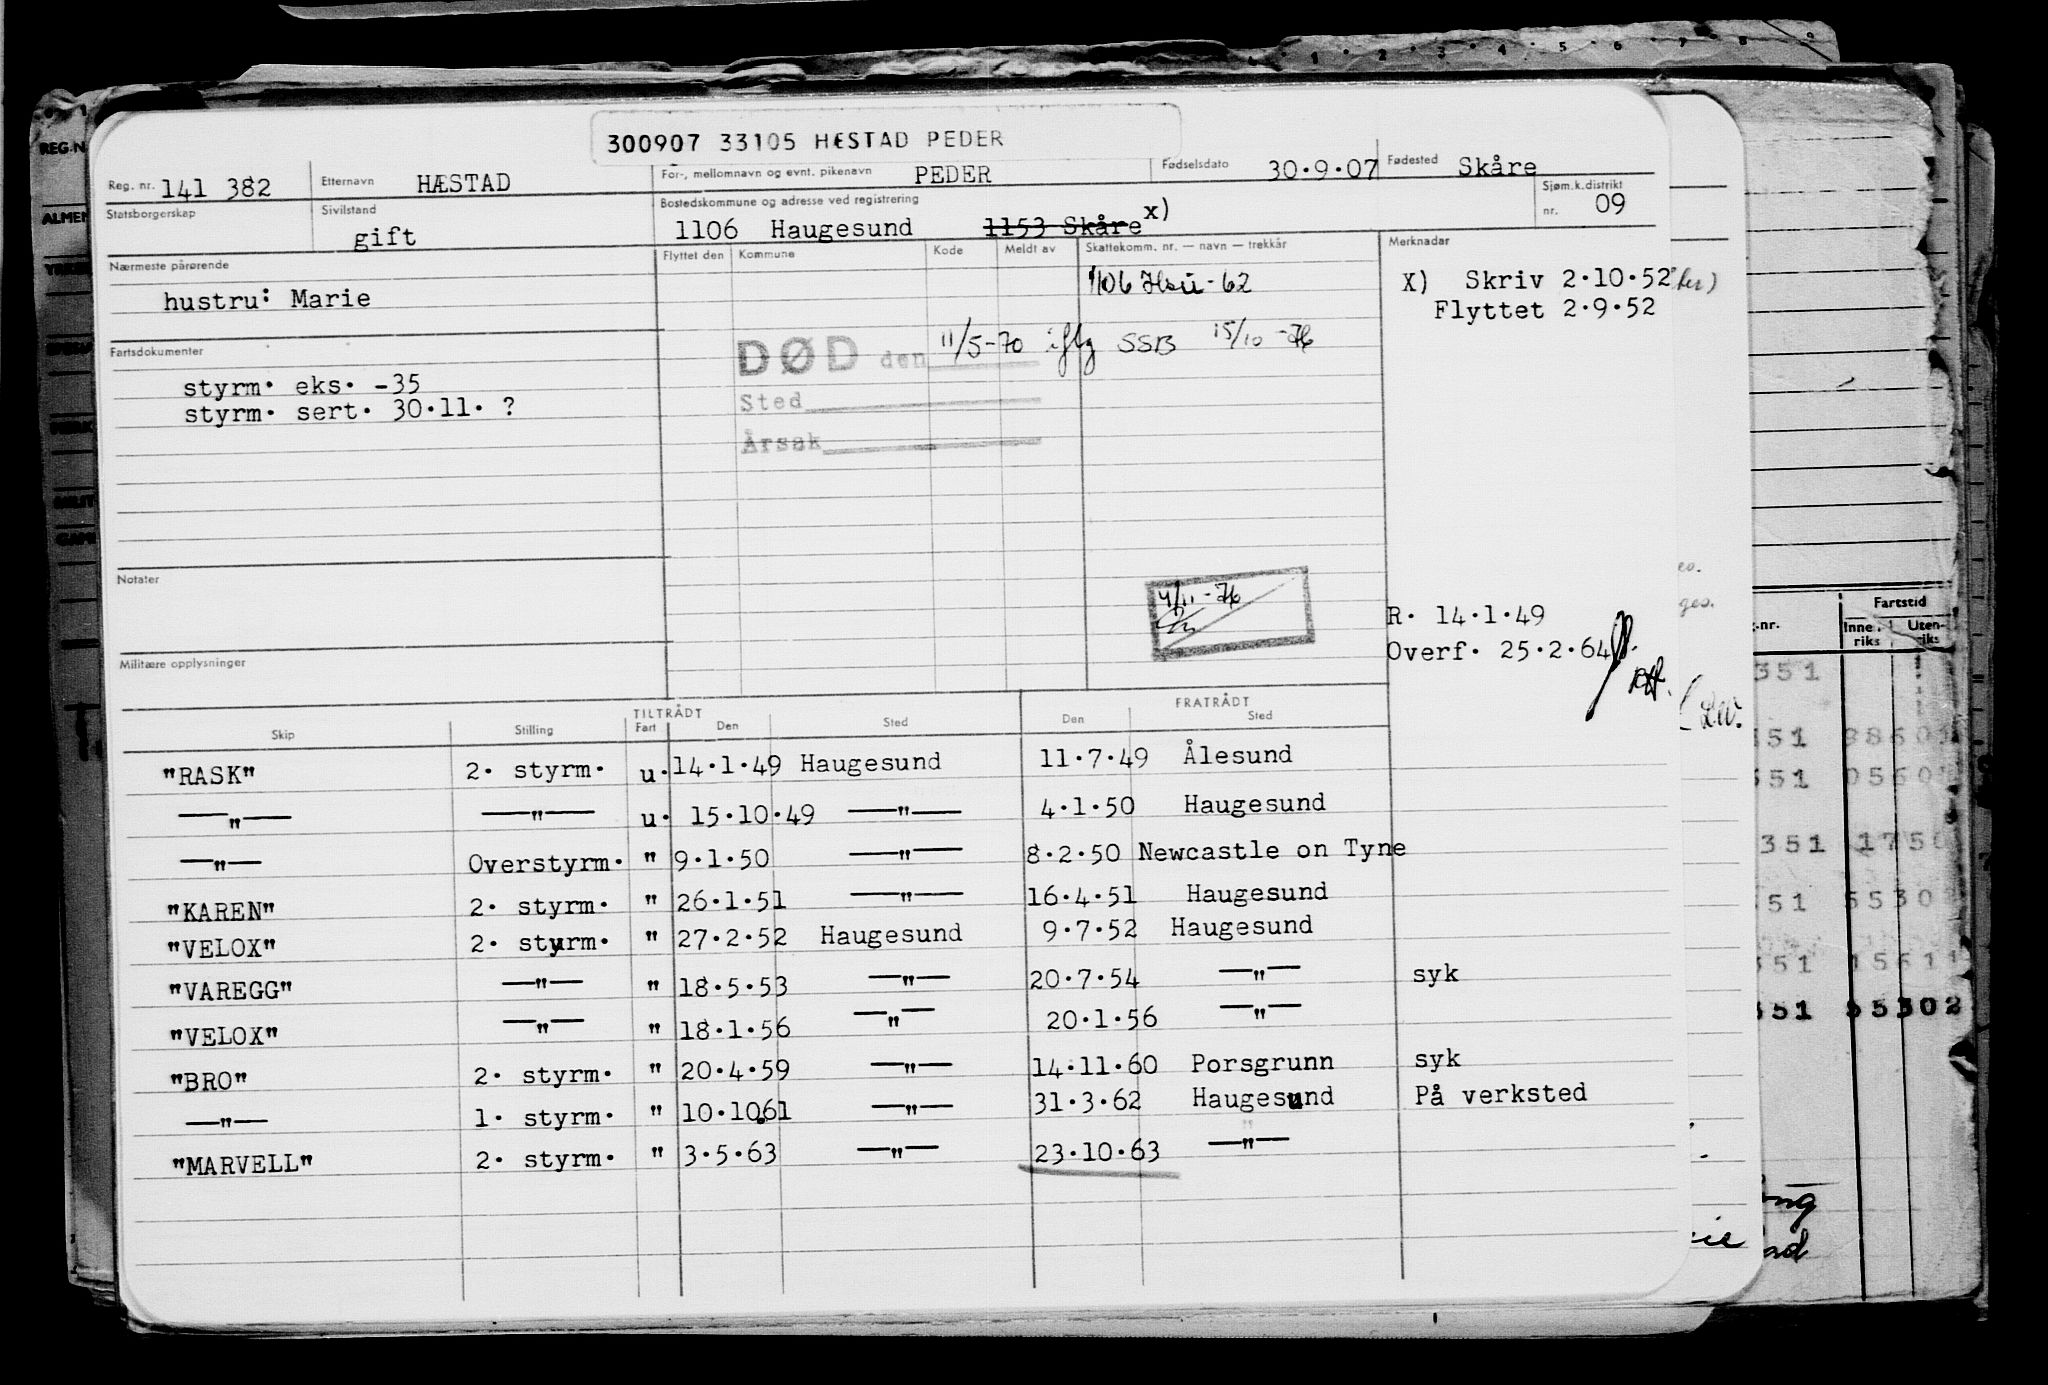 300907 33105 HÆSTAD PEDER
Reg. nr. 141 382 Etternavn HÆSTAD For-, mellomnavn og evnt. pikenavn PEDER Fødselsdato 30.9.07 Fødested Skåre
Statsborgerskap Sivilstand gift Bostedskommune og adresse ved registrering 1106 Haugesund 1153 Skåre x) Sjøm.k.distrikt nr. 09
Nærmeste pårørende Flyttet den Kommune Kode Meldt av Skattekomm. nr. — navn — trekkår Merknadar
hustru: Marie 1106 Hsu - 62 X) Skriv 2.10.52
Flyttet 2.9.52
Fartsdokumenter DØD den 11/5-70 iflg SSB 15/10 -76
styrm. eks. -35 Sted
styrm. sert. 30.11. ? Årsak
Notater 4/11-76
R. 14.1.49
Overf. 25.2.64
Militære opplysninger
TILTRÅDT FRATRÅDT
Skip Stilling Fart Den Sted Den Sted
"RASK" 2. styrm. u. 14.1.49 Haugesund 11.7.49 Ålesund
—"— —"— u. 15.10.49 —"— 4.1.50 Haugesund
—"— Overstyrm. " 9.1.50 —"— 8.2.50 Newcastle on Tyne
"KAREN" 2. styrm. " 26.1.51 —"— 16.4.51 Haugesund
"VELOX" 2. styrm. " 27.2.52 Haugesund 9.7.52 Haugesund
"VAREGG" —"— " 18.5.53 —"— 20.7.54 —"— syk
"VELOX" —"— " 18.1.56 —"— 20.1.56 —"—
"BRO" 2. styrm. " 20.4.59 —"— 14.11.60 Porsgrunn syk
—"— 1. styrm. " 10.10.61 —"— 31.3.62 Haugesund På verksted
"MARVELL" 2. styrm. " 3.5.63 —"— 23.10.63 —"—
Fartstid
Innenriks Utenriks
351
351
351
351 1750
351
351
351 55302